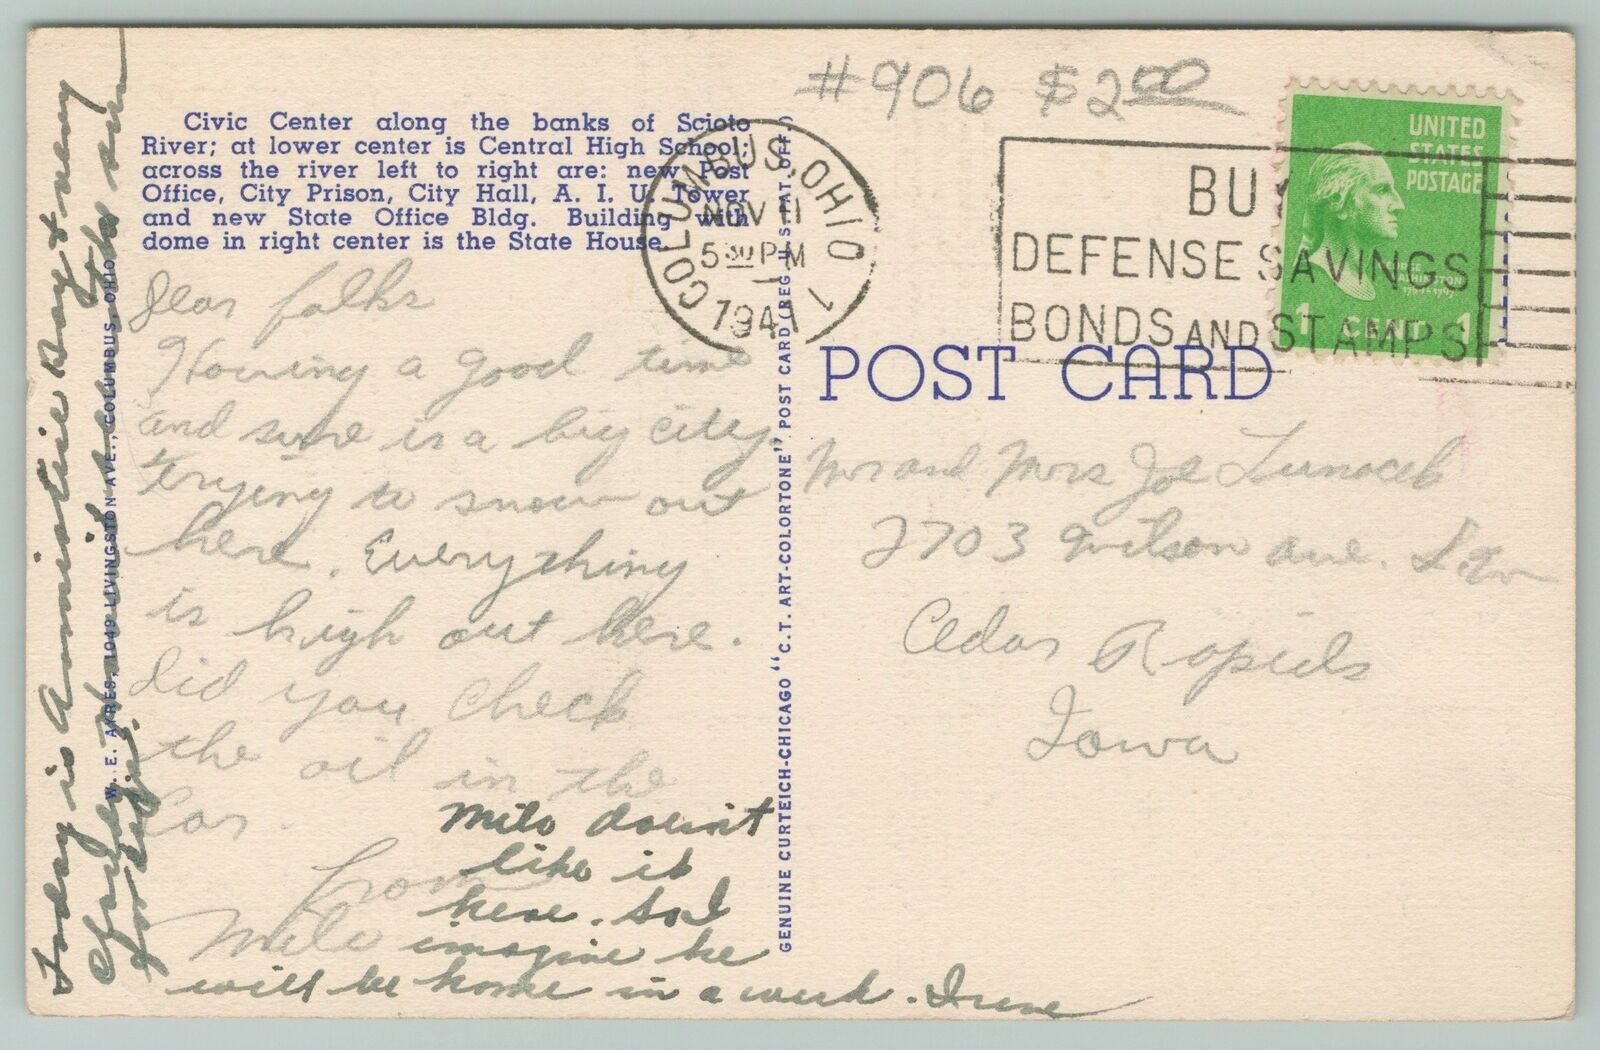 #906 $2.00
Civic Center along the banks of Scioto
River; at lower center is Central High School;
across the river left to right are: new Post
Office, City Prison, City Hall, A. I. U. Tower
and new State Office Bldg. Building with
dome in right center is the State House.
COLUMBUS, OHIO 1
NOV 11
5 30 PM
1941
BU
DEFENSE SAVINGS
BONDS AND STAMPS
UNITED
STATES
POSTAGE
GEORGE
WASHINGTON
1 CENT 1
POST CARD
Dear folks
Having a good time
and sure is a big city.
trying to snow out
here. Everything
is high out here.
Did you check
the oil in the
Car.
from
Milo
Milo doesn't
like it
here. So I
imagine he
will be home in a week. Irene
Today is Armistice Day & very
W. E. AYRES, 1049 LIVINGSTON AVE., COLUMBUS, OHIO
GENUINE CURTEICH-CHICAGO "C. T. ART-COLORTONE" POST CARD (REG. U. S. PAT. OFF.)
Mr and Mrs Joe
2703 Wilson ave. S.W
Cedar Rapids
Iowa